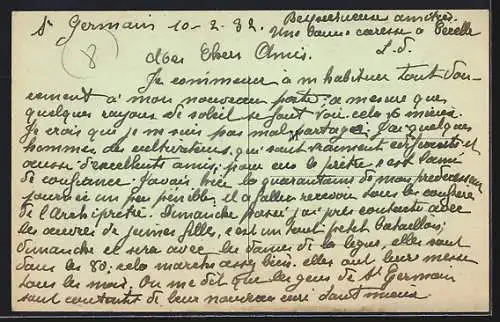 St Germain 10-2-32. Respectueuses amitiés.
Une bonne caresse à
8
Mes Chers Amis.
Je commence à m'habituer tout dou-
cement à mon nouveau poste; à mesure que
quelques rayons de soleil se font voir cela va mieux.
Je crois que je ne suis pas mal partagé. J'ai quelques
hommes des cultivateurs, qui sont vraiment et
aussi d'excellents amis, pour eux le prêtre c'est l'ami
de confiance. J'avais hier la quarantaine de mon prédécesseur
journée un peu pénible, il a fallu recevoir tous les confrères
de l'Archiprêtré. Dimanche passé j'ai pris contact avec
les œuvres de jeunes filles, c'est un tout petit bataillon,
dimanche ce sera avec les dames de la ligue, elles sont
dans les 80, cela marche assez bien. elles ont leur messe
tous les mois. On me dit que les gens de St Germain
sont contents de leur nouveau curé